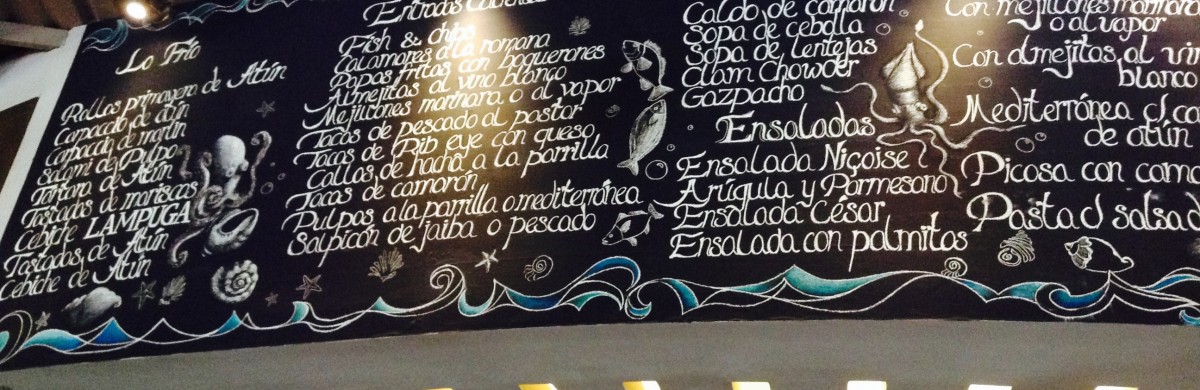 Lo Frío
Rollos primavera de Atún
Carpaccio de atún
Carpaccio de marlin
Salami de Pulpo
Tartara de Atún
Tostadas de mariscos
Cebiche LAMPUGA
Tostadas de Atún
Cebiche de Atún
Entradas
Fish & chips
Calamares a la romana
Papas fritas con boquerones
Almejitas al vino blanco
Mejillones marinara o al vapor
Tacos de pescado al pastor
Tacos de Rib eye con queso
Callos de hacha a la parrilla
Tacos de camarón
Pulpos a la parrilla o mediterránea
Salpicón de jaiba o pescado
Caldo de camarón
Sopa de cebolla
Sopa de lentejas
Clam Chowder
Gazpacho
Ensaladas
Ensalada Niçoise
Arúgula y Parmesano
Ensalada César
Ensalada con palmitos
Con mejillones marinara
o al vapor
Con almejitas al vin
blanco
Mediterránea c/
de atún
Picosa con
Pasta c/ salsa